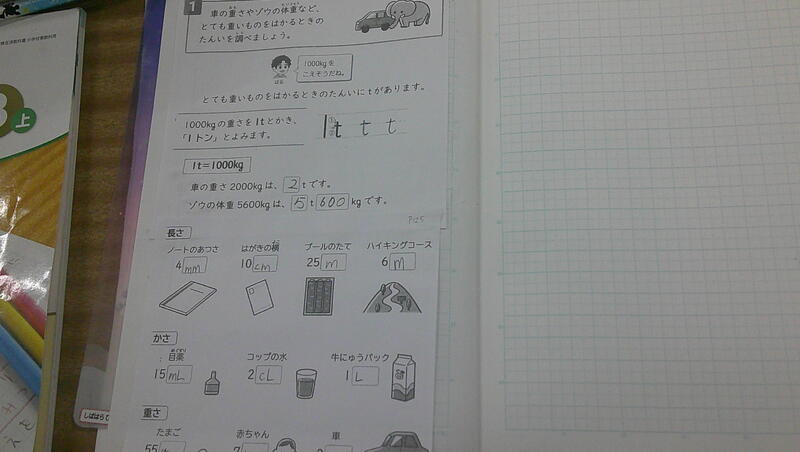 1
車の重さやゾウの体重など、
とても重いものをはかるときの
たんいを調べましょう。
1000kgを
こえそうだね。
はる
とても重いものをはかるときのたんいにtがあります。
1000kgの重さを1tとかき、
「1トン」とよみます。
1t t t
1t=1000kg
車の重さ2000kgは、2tです。
ゾウの体重5600kgは、5t600kgです。
P125
長さ
ノートのあつさ はがきの横 プールのたて ハイキングコース
4mm 10cm 25m 6m
かさ
目薬 コップの水 牛にゅうパック
15mL 2cL 1L
重さ
たまご 赤ちゃん 車
55
上